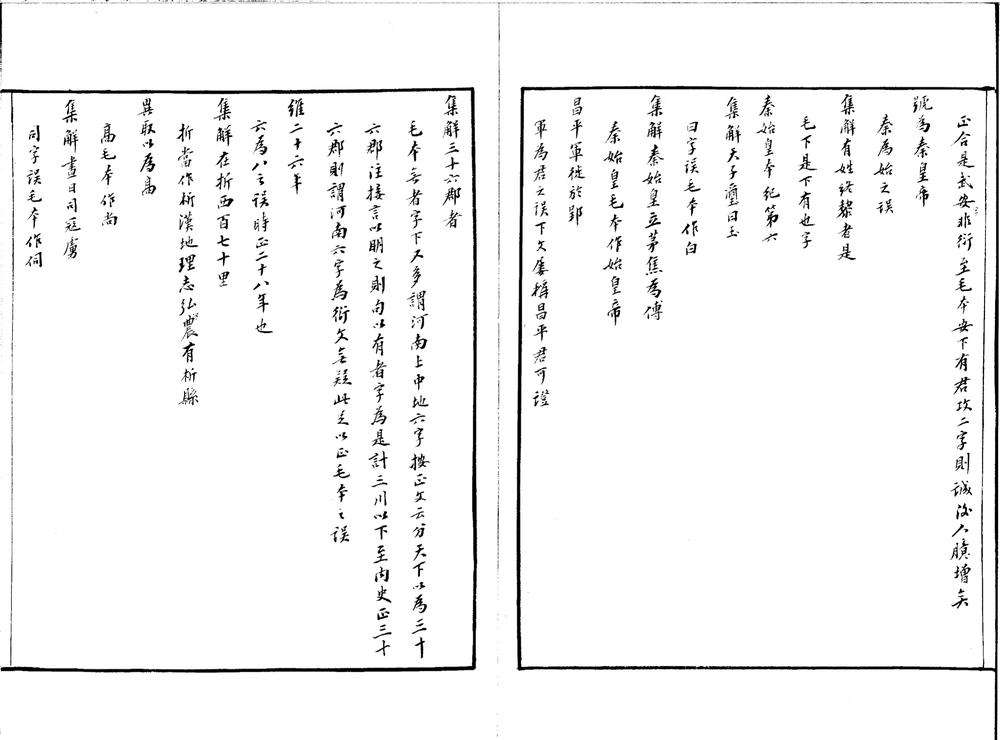 正合是武安非衍至毛本安下有君攻二字則誠後人臆增矣
號為秦皇帝
秦為始之误
集解有姓终黎者是
毛下是下有也字
秦始皇本纪第六
集解天子璽曰玉
曰字误毛本作白
集解秦始皇立茅焦為傅
秦始皇毛本作始皇帝
昌平軍徙於郢
軍為君之误下文屡稱昌平君可證
集解三十六郡者
毛本無者字下又多謂河南上中地六字按正文云分天下以為三十
六郡注接言以明之則句以有者字為是計三川以下至内史正三十
六郡則謂河南六字為衍文無疑此足以正毛本之误
维二十六年
六為八之误時正二十八年也
集解在折西百七十里
折當作析漢地理志弘農有析縣
異取以為高
高毛本作尚
集解晝日司寇虜
司字误毛本作伺